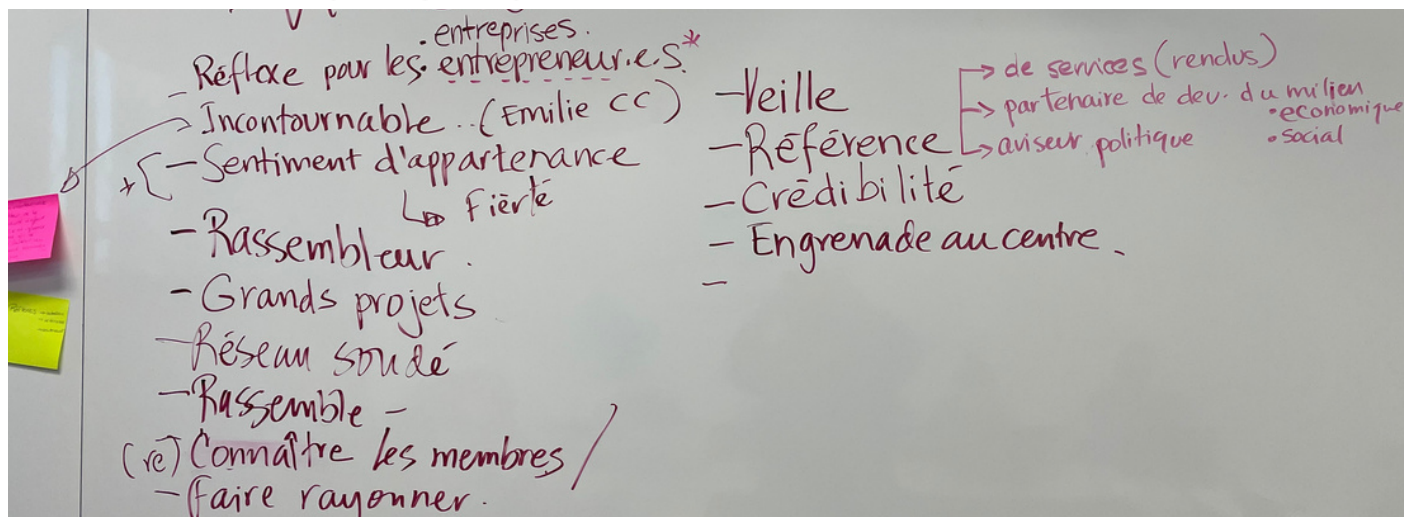 • entreprises.
- Réflexe pour les • entrepreneur.e.s.*
Incontournable .. (Emilie CC)
* [ - Sentiment d'appartenance
↳ Fierté
- Rassembleur.
- Grands projets
- Réseau soudé
- Rassemble -
(re) Connaître les membres /
- faire rayonner.
- Veille
- Référence
→ de services (rendus)
→ partenaire de dev. du milieu
• economique
• social
↳ aviseur politique
- Crédibilité
- Engrenade au centre.
-